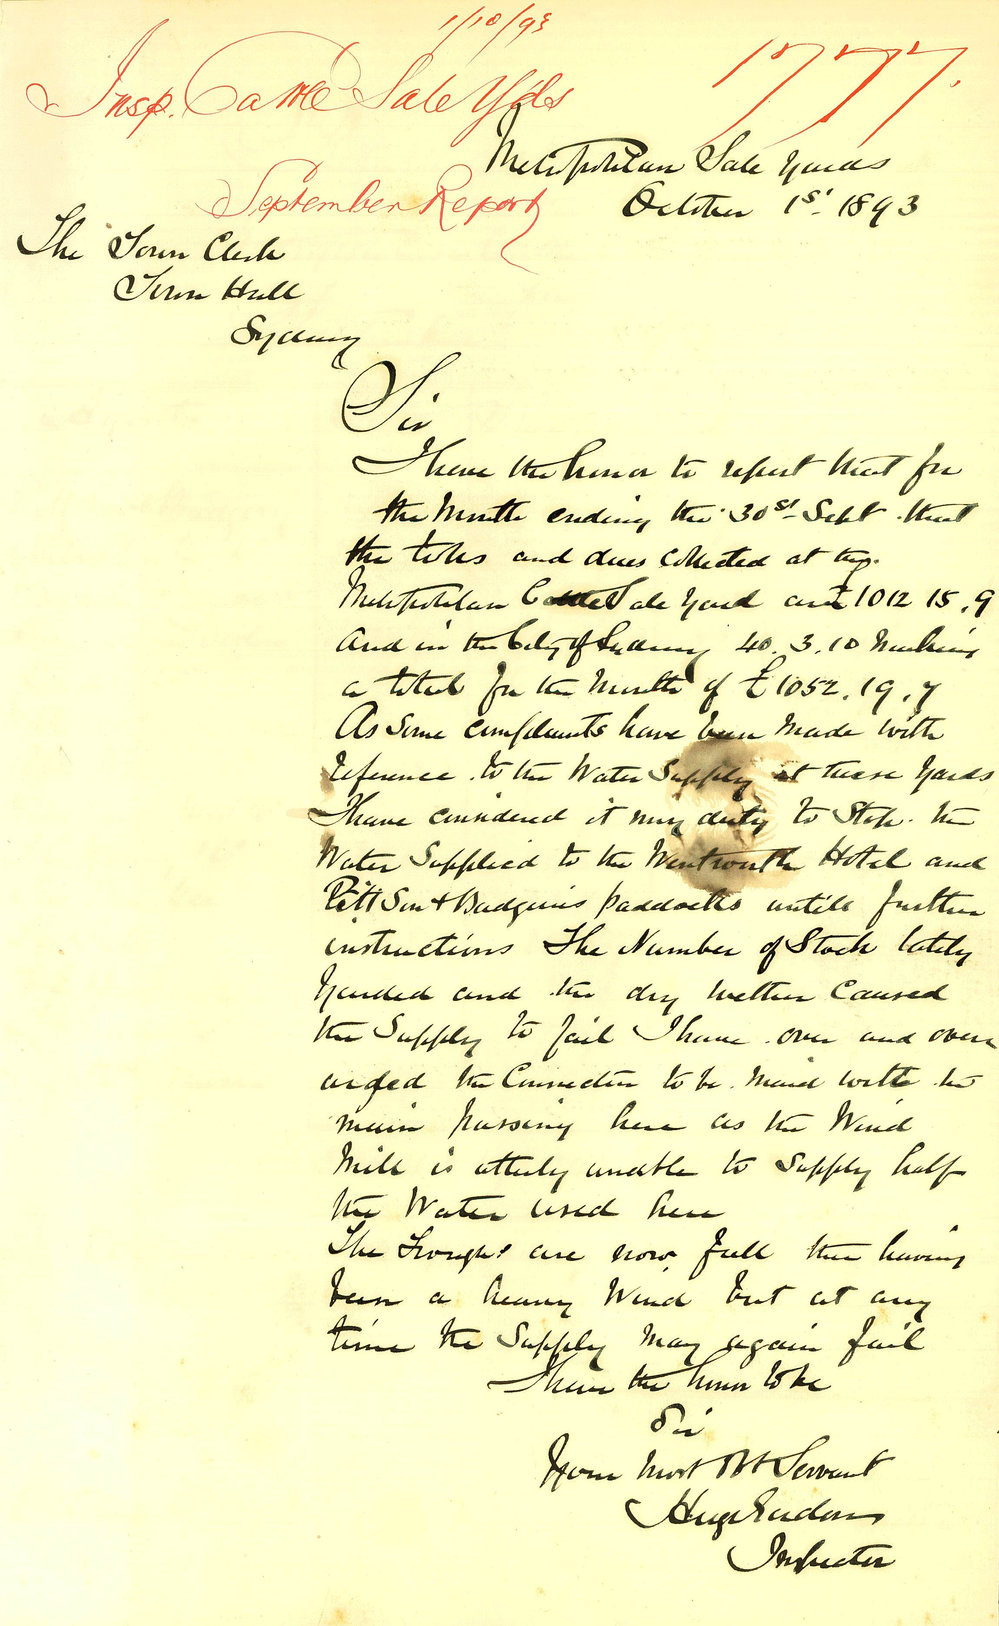 1/10/93
Insp. Cattle Sale Yds
1777.
Metropolitan Sale Yards
September Report
October 1st 1893
The Town Clerk
Town Hall
Sydney
Sir
I have the honor to report that for
the Month ending the 30st Sept that
the tolls and dues collected at the
Metropolitan Cattle Sale Yard are £1012 15.9
And in the City of Sydney 40.3.10 Making
a total for the Month of £1052.19.7
As Some complaints have been Made with
reference to the Water Supply at these Yards
I have considered it my duty to Stop the
Water Supplied to the Wentworth Hotel and
Pitt Son & Badgerys paddocks untill further
instructions The Number of Stock lately
Yarded and the dry wether Caused
the Supply to fail I have over and over
urged the Connection to be Maid with the
main passing here as the Wind
Mill is utterly unable to Supply half
the Water used here
The Troughs are now full ther having
been a heavy Wind but at any
time the Supply May again fail
I have the honor to be
Sir
Your Most Obt Servant
Inspector